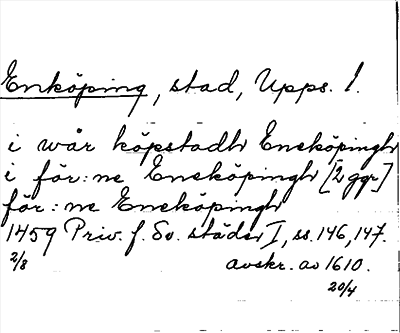 Enköping, stad, Upps. l.
i wår köpstadh Eneköpingh
i för:ne Eneköpingh [2 ggr]
för:ne Eneköpingh
1459 Priv. f. Sv. städer I, ss. 146, 147.
2/8 avskr. av 1610.
20/4